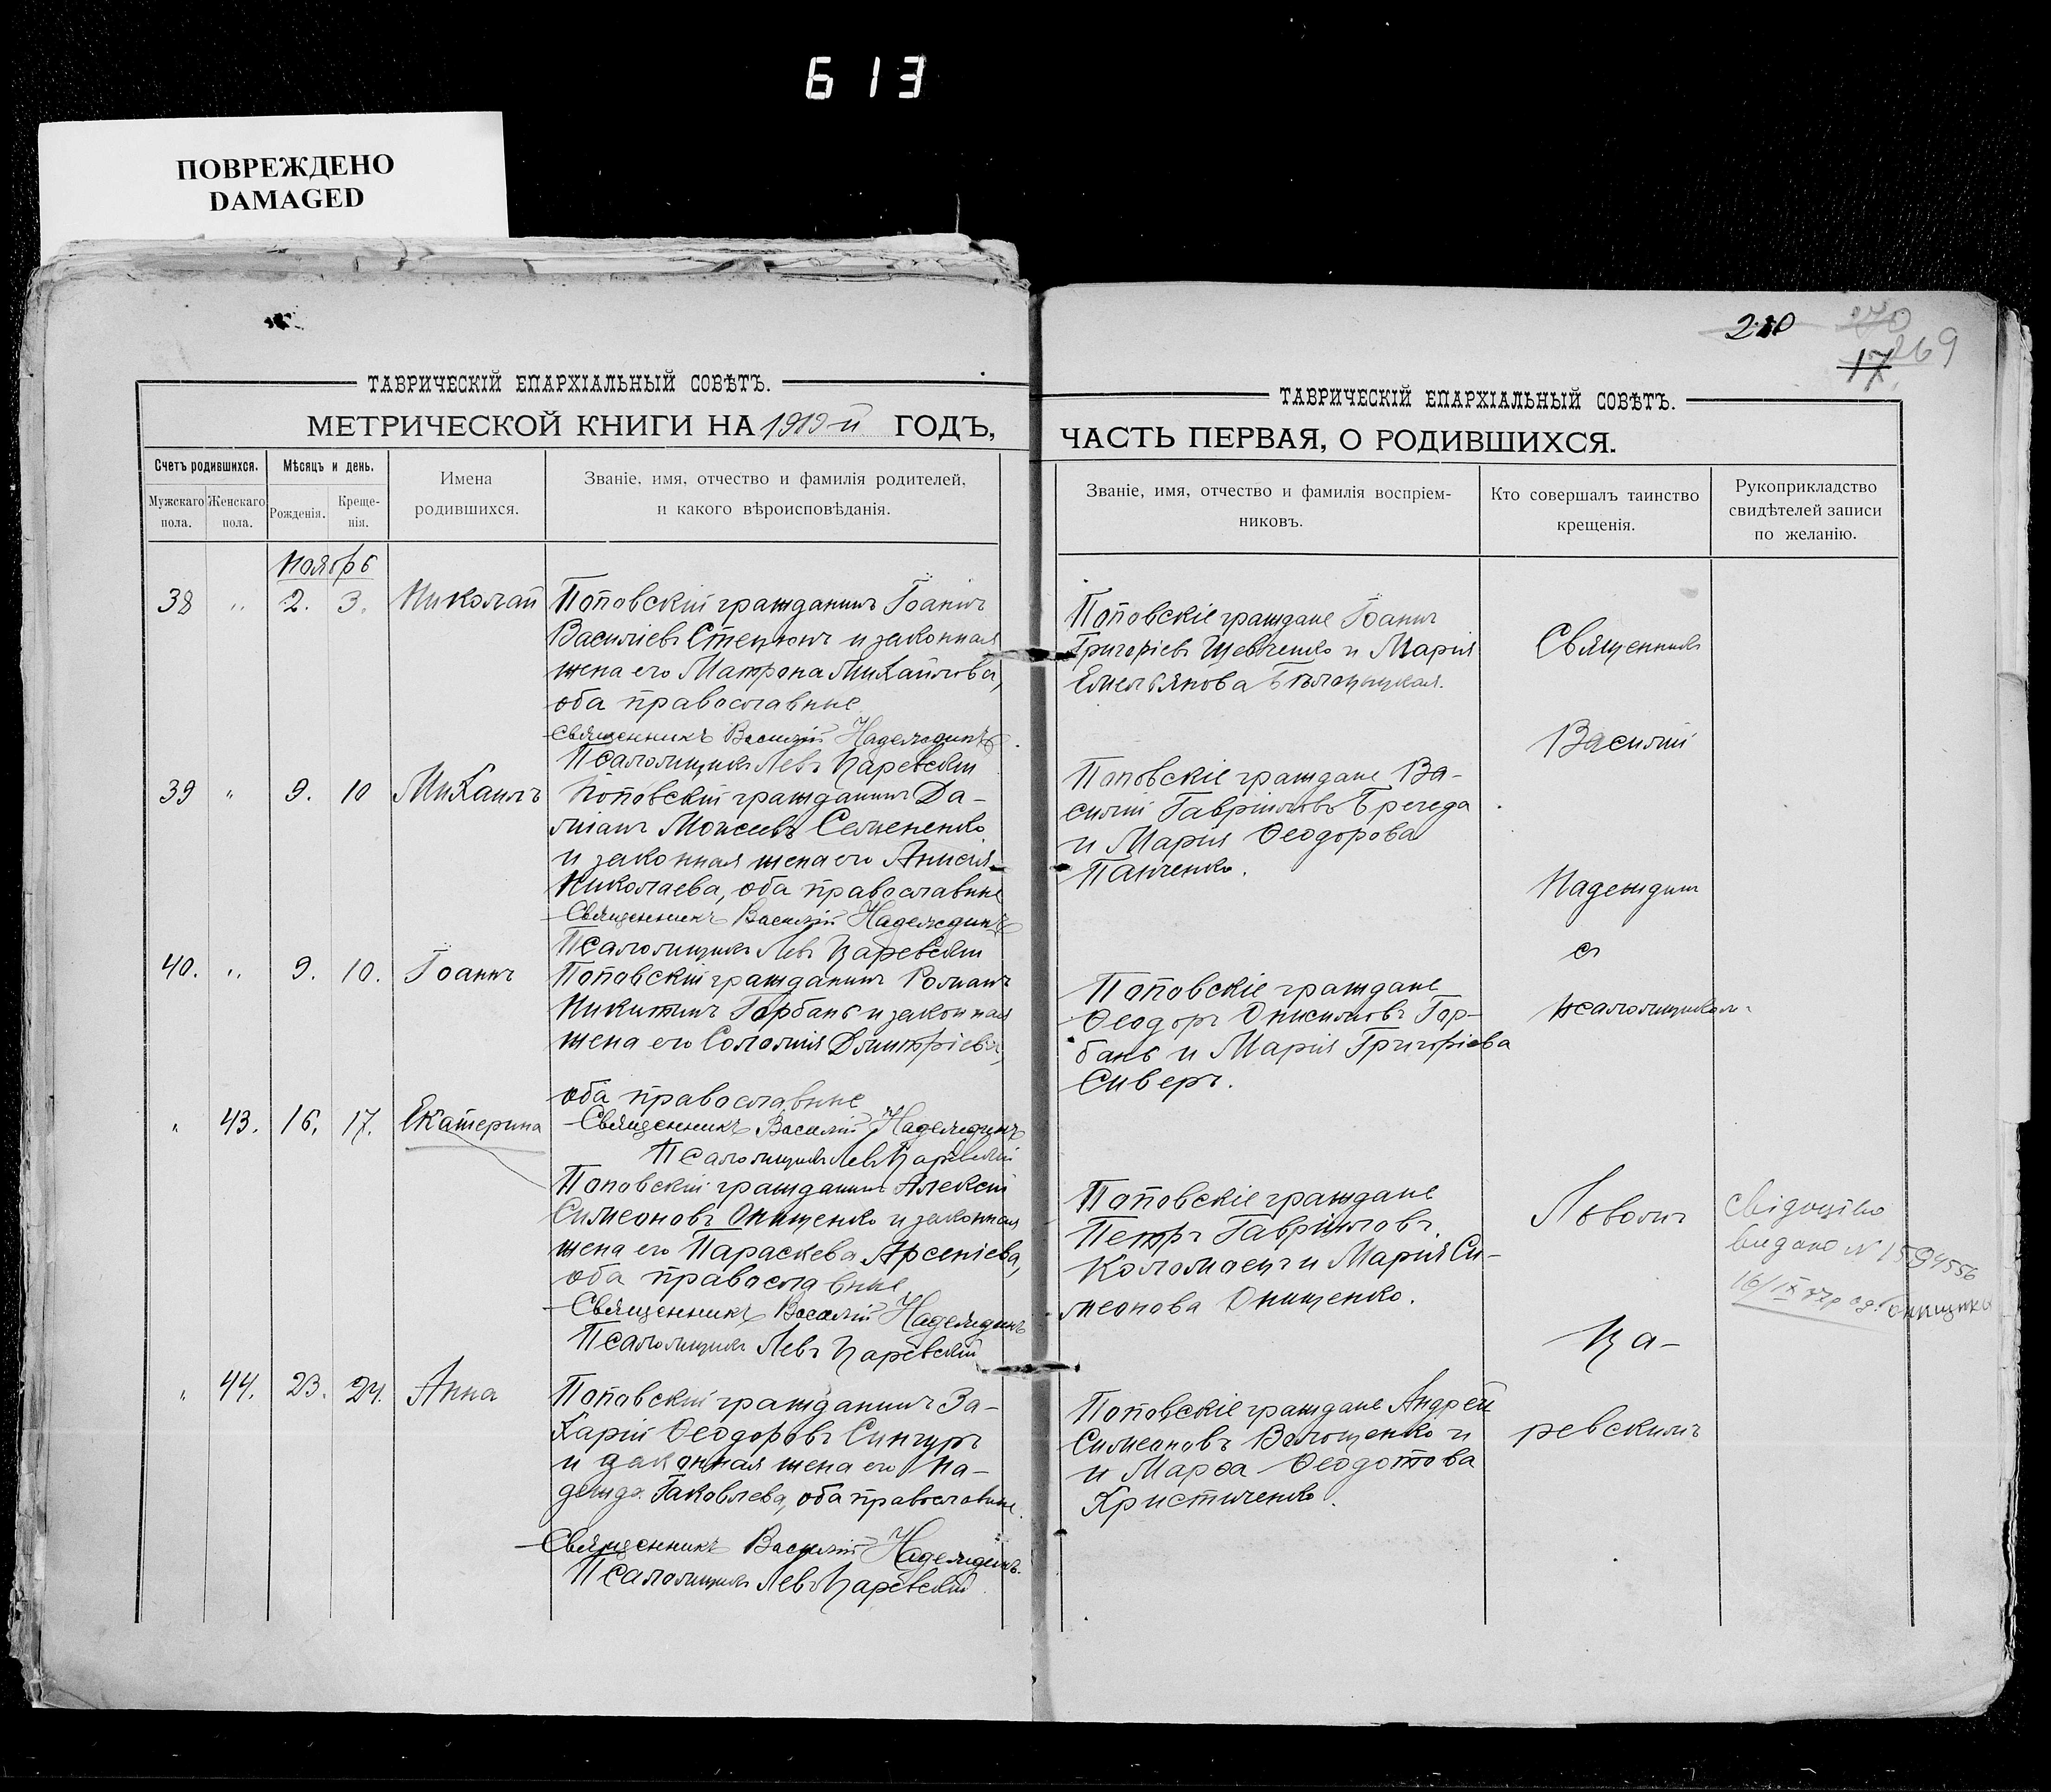 613
ПОВРЕЖДЕНО
DAMAGED
ТАВРИЧЕСКІЙ ЕПАРХІАЛЬНЫЙ СОВѢТЪ.
МЕТРИЧЕСКОЙ КНИГИ НА 1919-й ГОДЪ,
Счетъ родившихся.
Мужскаго пола.
Женскаго пола.
Мѣсяцъ и день.
Рожденія.
Крещенія.
Имена
родившихся.
Званіе, имя, отчество и фамилія родителей,
и какого вѣроисповѣданія.
Ноябрь
38 " 2. 3. Николай
Поповскій гражданинъ Іоаннъ
Василіевъ Стецюнъ и законная
жена его Матрона Михайлова,
оба православные
Священникъ Василій Надеждинъ
Псаломщикъ Левъ Царевскій
39 " 9. 10 Михаилъ
Поповскій гражданинъ Да-
міанъ Моисеевъ Семененко
и законная жена его Анисія
Николаева, оба православные
Священникъ Василій Надеждинъ
Псаломщикъ Левъ Царевскій
40. " 9. 10. Іоаннъ
Поповскій гражданинъ Романъ
Никитинъ Горбань и законная
жена его Соломія Димитріева,
оба православные
Священникъ Василій Надеждинъ
Псаломщикъ Левъ Царевскій
" 43. 16. 17. Екатерина
Поповскій гражданинъ Алексій
Симеоновъ Онищенко и законная
жена его Параскева Арсеніева,
оба православные
Священникъ Василій Надеждинъ
Псаломщикъ Левъ Царевскій
" 44. 23. 24. Анна
Поповскій гражданинъ За-
харій Ѳеодоровъ Сингуръ
и законная жена его На-
дежда Іаковлева, оба православные.
Священникъ Василій Надеждинъ.
Псаломщикъ Левъ Царевскій
210 270
17 269
ТАВРИЧЕСКІЙ ЕПАРХІАЛЬНЫЙ СОВѢТЪ.
ЧАСТЬ ПЕРВАЯ, О РОДИВШИХСЯ.
Званіе, имя, отчество и фамилія воспріем-
никовъ.
Кто совершалъ таинство
крещенія.
Рукоприкладство
свидѣтелей записи
по желанію.
Поповскіе граждане Іоаннъ
Григоріевъ Шевченко и Марія
Емельянова
Поповскіе граждане Ва-
силій Гавріиловъ Брегеда
и Марія Ѳеодорова
Панченко.
Поповскіе граждане
Ѳеодоръ Онисимовъ Гор-
бань и Марія Григоріева
Сиверъ.
Поповскіе граждане
Петръ Гавріиловъ
Коломоецъ и Марія Си-
меонова Онищенко.
Поповскіе граждане Андрей
Симеоновъ Волощенко и
и Марѳа Ѳеодотова
Христиченко.
Священникъ
Василій
Надеждинъ
съ
псаломщикомъ
Львомъ
Ца-
ревскимъ
свідоцтво
видано N 1594556
16/IX